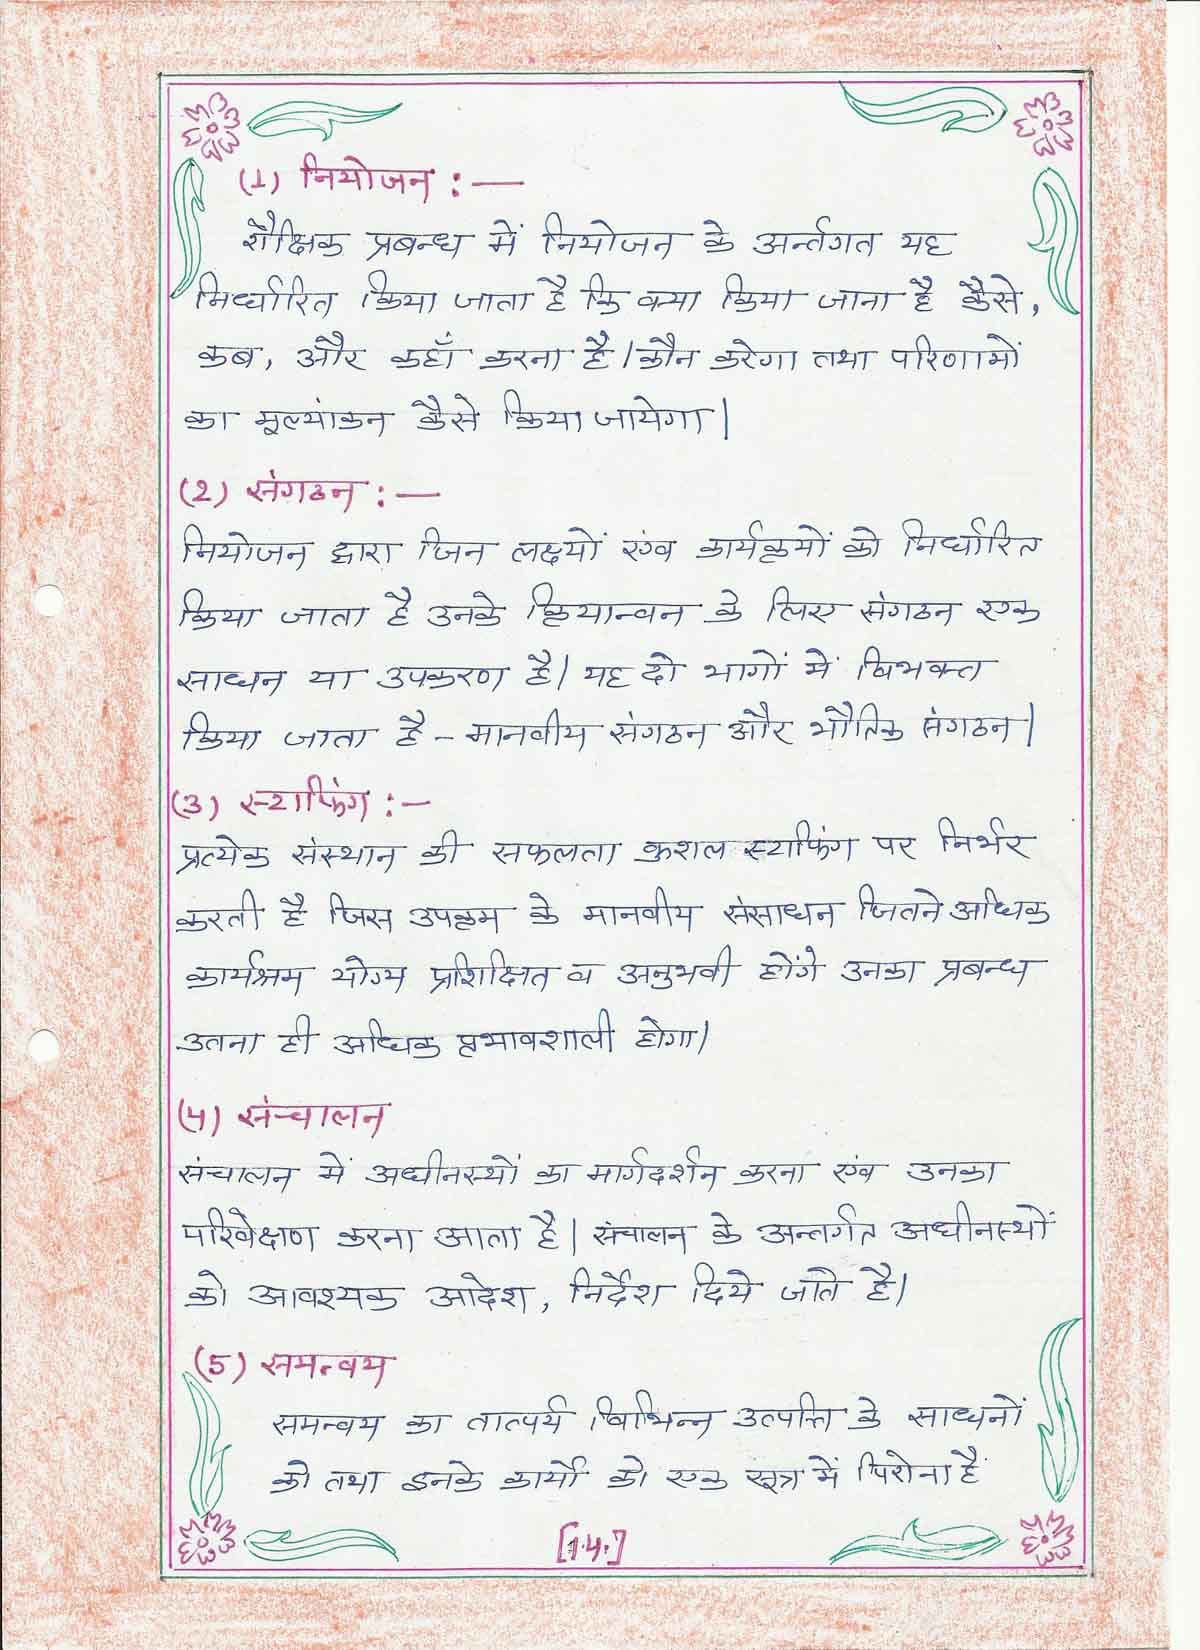 (1) नियोजन :—
शैक्षिक प्रबन्ध में नियोजन के अर्न्तगत यह
निर्धारित किया जाता है कि क्या किया जाना है कैसे,
कब, और कहाँ करना है। कौन करेगा तथा परिणामों
का मूल्यांकन कैसे किया जायेगा।
(2) संगठन :—
नियोजन द्वारा जिन लक्ष्यों एंव कार्यक्रमों को निर्धारित
किया जाता है उनके क्रियान्वन के लिए संगठन एक
साधन या उपकरण है। यह दो भागों में विभक्त
किया जाता है – मानवीय संगठन और भौतिक संगठन।
(3) स्टाफिंग :–
प्रत्येक संस्थान की सफलता कुशल स्टाफिंग पर निर्भर
करती है जिस उपक्रम के मानवीय संसाधन जितने अधिक
कार्यश्रम योग्य प्रशिक्षित व अनुभवी होंगे उनका प्रबन्ध
उतना ही अधिक प्रभावशाली होगा।
(4) संचालन
संचालन में अधीनस्थों का मार्गदर्शन करना एंव उनका
परिवेक्षण करना आता है। संचालन के अन्तर्गत अधीनस्थों
को आवश्यक आदेश, निर्देश दिये जाते है।
(5) समन्वय
समन्वय का तात्पर्य विभिन्न उत्पत्ति के साधनों
को तथा इनके कार्यों को एक सूत्र में पिरोना हैं
[14.]